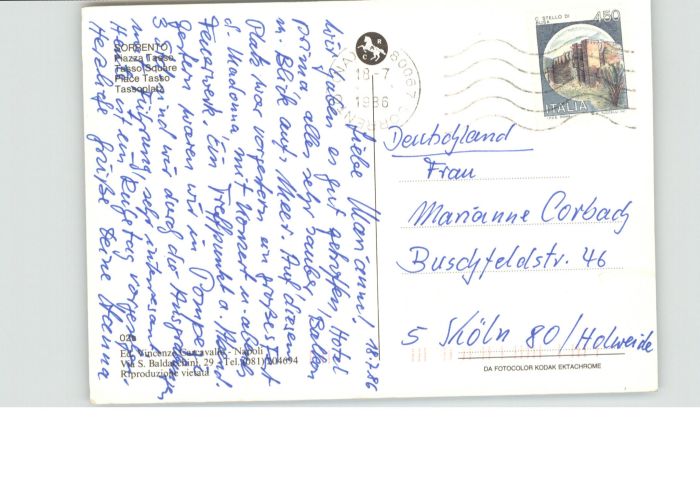 SORRENTO
Piazza Tasso
Tasso Square
Place Tasso
Tassoplatz
18.7.86
Liebe Marianne!
wir haben es gut getroffen, Hotel
prima, alles sehr sauber, Balkon
m. Blick aufs Meer. Auf diesem
Platz war vorgestern ein großes Fest
d. Madonna, mit Konzert u.
Feuerwerk. Ein Treffpunkt a.
Gestern waren wir in Pompei
3 Std. sind wir durch die Ausgrabungen
mit Führung, sehr interessant
Heute ist ein Ruhetag
Herzliche Grüße Deine Hanna
02
Ed. Vincenzo Carcavallo - Napoli
Via S. Baldacchini, 29 - Tel. (081) 204694
Riproduzione vietata
80067 SORRENTO
18-7
1986
C. STELLO DI
450
ITALIA
Deutschland
Frau
Marianne Corbach
Buschfeldstr. 46
5 Köln 80/Holweide
DA FOTOCOLOR KODAK EKTACHROME